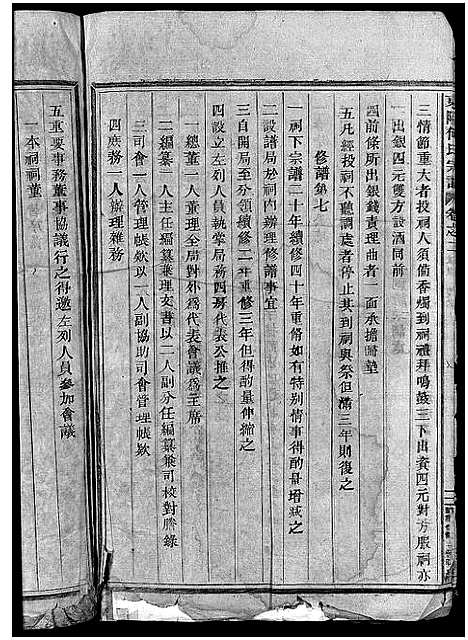 三情節重大者投祠人須備香燭到祠禮拜鳴鼓三下出資四元對方服祠亦
出銀四元雙方設酒同前
四前條所出銀錢責理曲者一面承擔賠墊
五凡經投祠不聽調處者停止其到祠與祭但滿三年則復之
修譜第七
一祠下宗譜二十年續修四十年重脩如有特別情事得酌量增減之
二設譜局於祠内辦理修譜事宜
三自開局至分領續修二年重修三年但得酌量伸縮之
四設立左列人員執掌局務四房代表公推之
一總董一人董理全局對外爲代表會議爲主席
二編纂一人主任編纂兼理文書以二人副分任編纂兼司校對謄錄
三司會一人管理帳欵以一人副協助司會管理帳欵
四庶務一人辦理雜務
五重要事務董事協議行之得邀左列人員參加會議
一本祠祠董